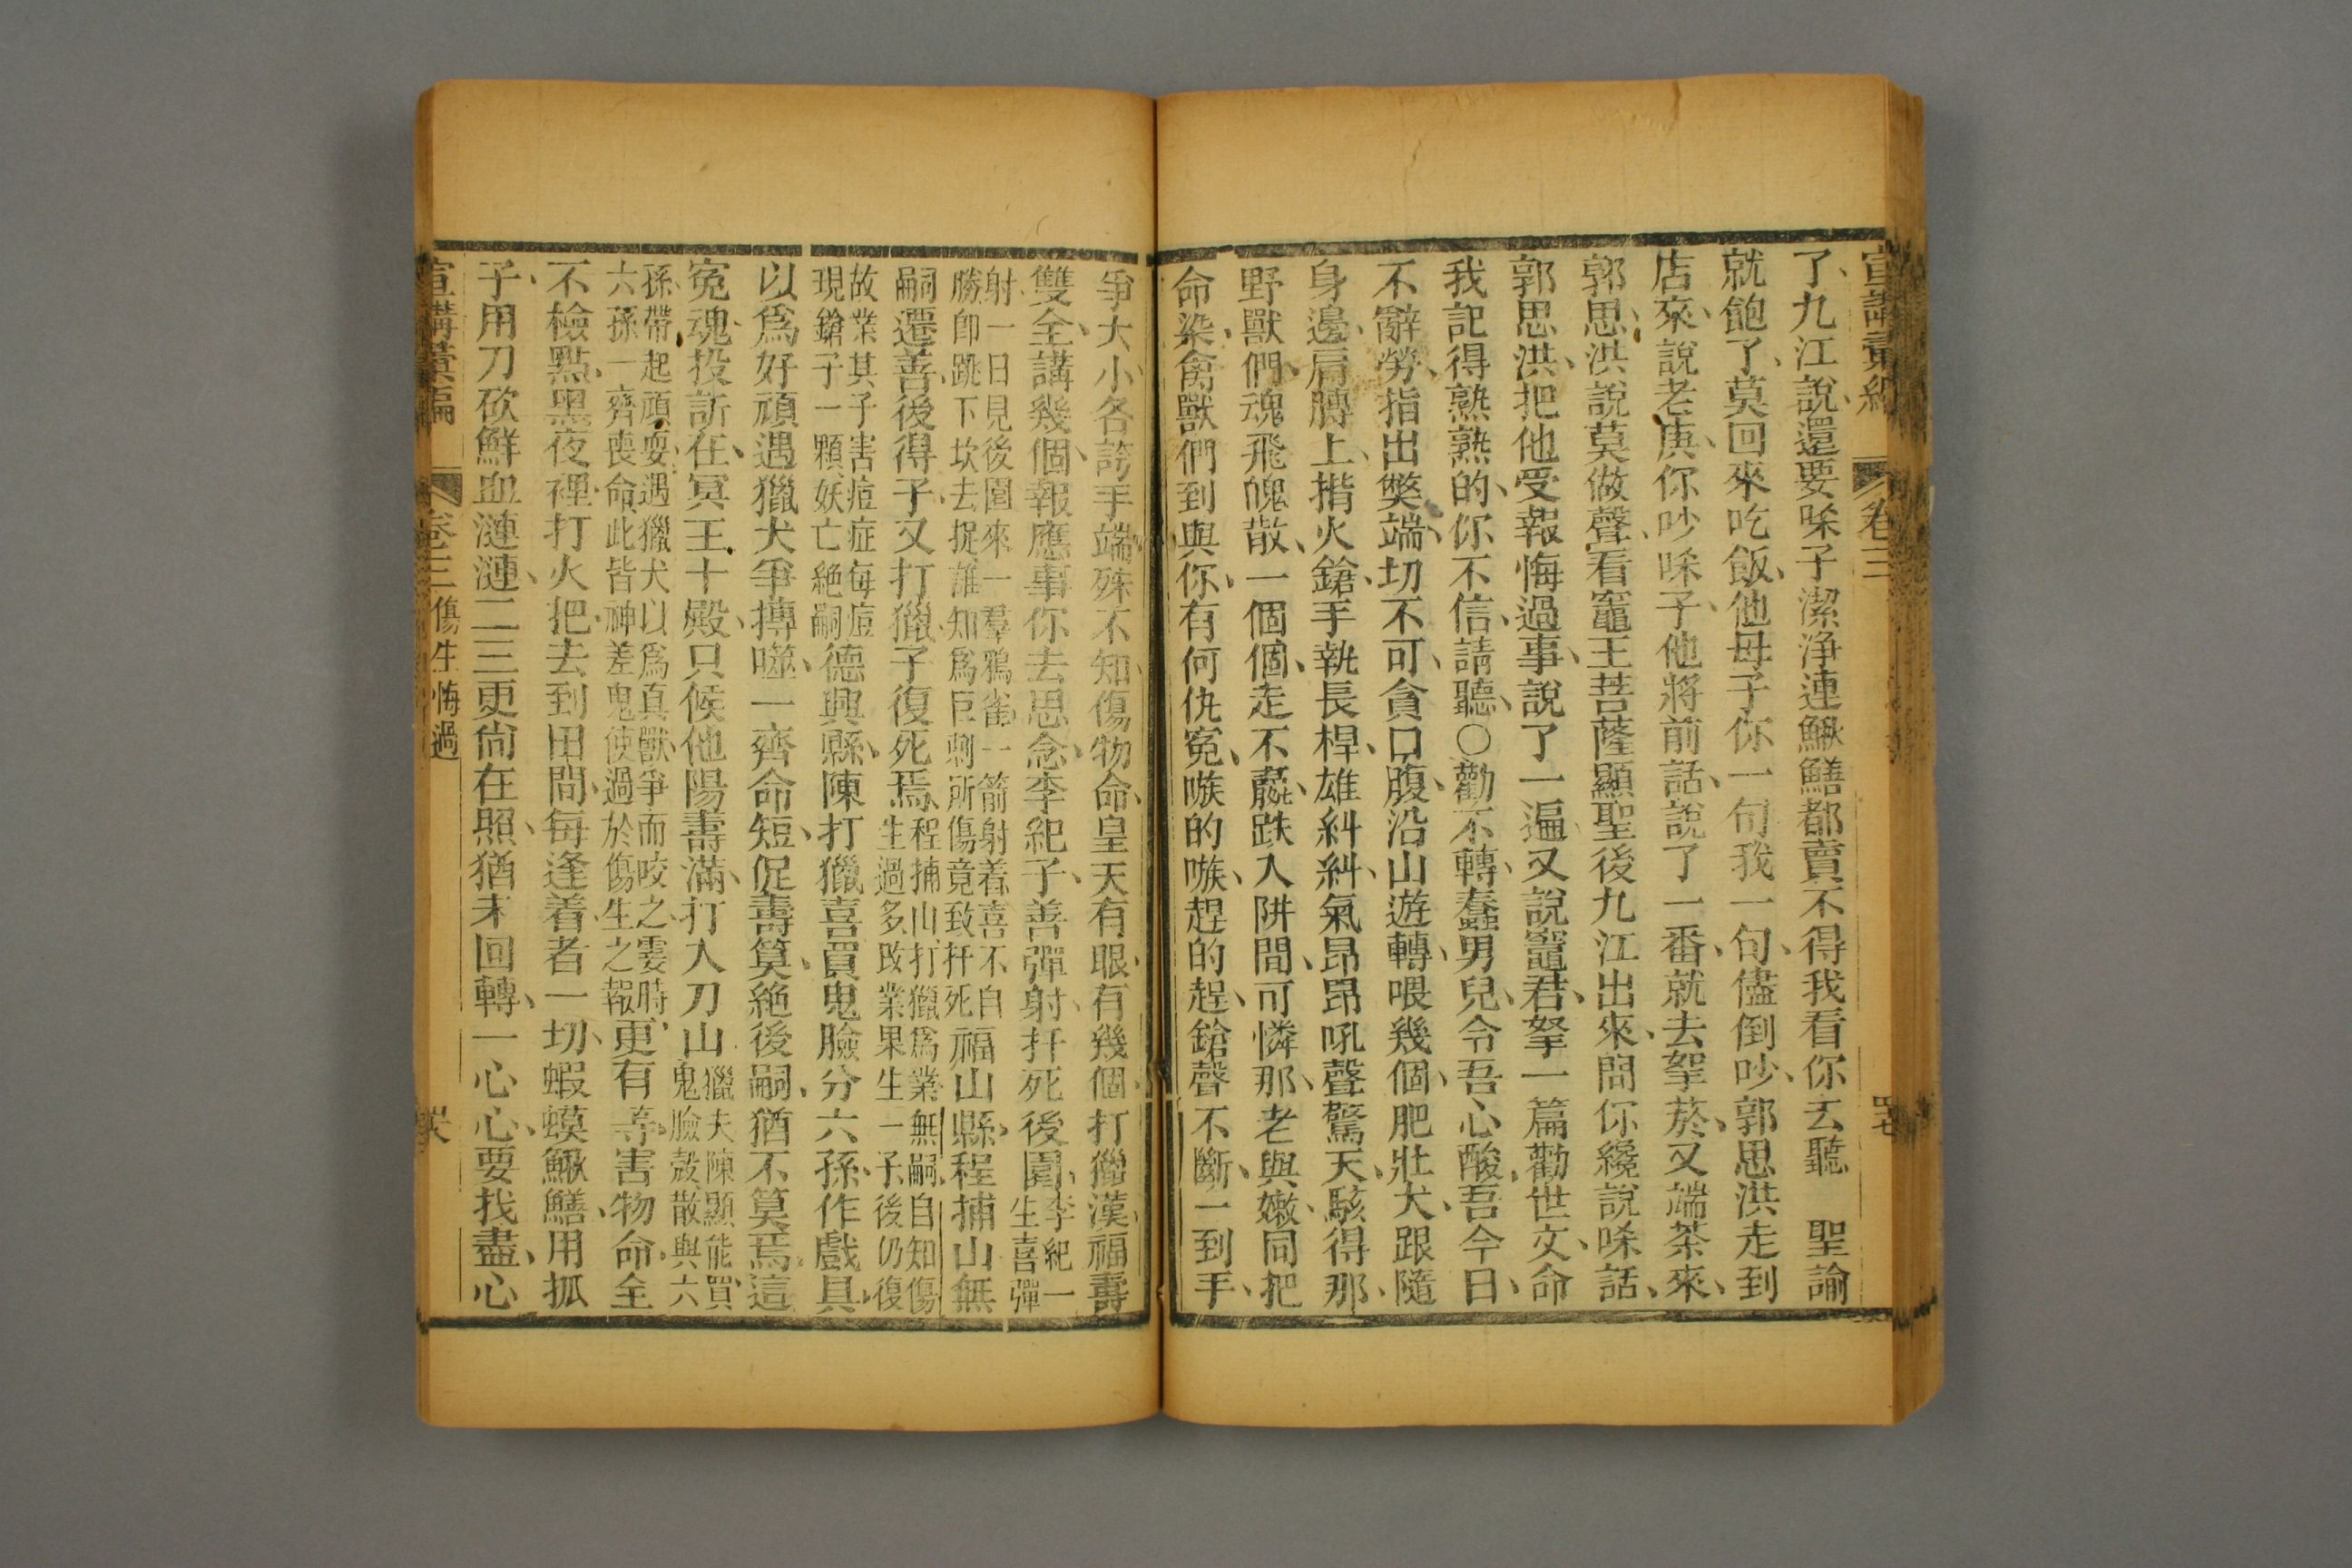 宣講彙編 卷三
了、九江說、還要㖔子潔淨連鰍鱔都賣不得我看你去聽 聖諭
就飽了、莫回來吃飯、他母子你一句我一句、儘倒吵、郭思洪走到
店來、說老庚、你吵㖔子、他將前話、說了一番、就去拏菸、又端茶來、
郭思洪說莫做聲、看竈王菩薩顯聖後九江出來、問你纔說㖔話、
郭思洪、把他受報悔過事、說了一遍、又說竈君、拏一篇勸世文、命
我記得熟熟的、你不信、請聽、〇勸不轉、蠢男兒、令吾心酸、吾今日、
不辭勞、指出獘端、切不可、貪口腹、沿山遊轉、喂幾個、肥壯犬、跟隨
身邊、肩膊上、揹火鎗、手執長桿、雄糾糾、氣昂昂吼聲驚天、駭得那、
野獸們、魂飛魄散、一個個、走不贏、跌入阱間、可憐那、老與嫩、同把
命染、禽獸們到與你、有何仇冤、嗾的嗾、趕的趕、鎗聲不斷、一到手、
爭大小各誇手端殊不知傷物命、皇天有眼、有幾個打獵漢福壽
雙全、講幾個、報應事你去思念、李紀子、善彈射、扞死後園、李紀一生喜彈
射、一日見後園來一羣鴉雀一箭射着喜不自勝卽跳下坎去捉誰知爲巨刺所傷竟致扞死福山縣、程捕山無
嗣遷善、後得子、又打獵、子復死焉、程捕山打獵爲業無嗣自知傷生過多改業果生一子後仍復
故業其子害痘症每痘現鎗子一顆妖亡絕嗣德興縣、陳打獵喜買鬼臉分六孫、作戲具、
以爲好頑遇獵犬爭摶噬、一齊命短、促壽算、絕後嗣、猶不算焉、這
冤魂、投訴在、冥王十殿、只候他陽壽滿、打入刀山獵夫陳顯能買鬼臉殼散與六
孫、帶起頑耍、遇獵犬以爲真獸、爭而咬之霎時六孫一齊喪命、此皆神差鬼使過於傷生之報更有等、害物命、全
不檢點、黑夜裡、打火把、去到田間、每逢着、者一切、蝦蟆鰍鱔、用抓
子、用刀砍鮮血漣漣、二三更尙在照、猶未回轉、一心心、要找盡、心
宣講彙編 卷三 傷生悔過